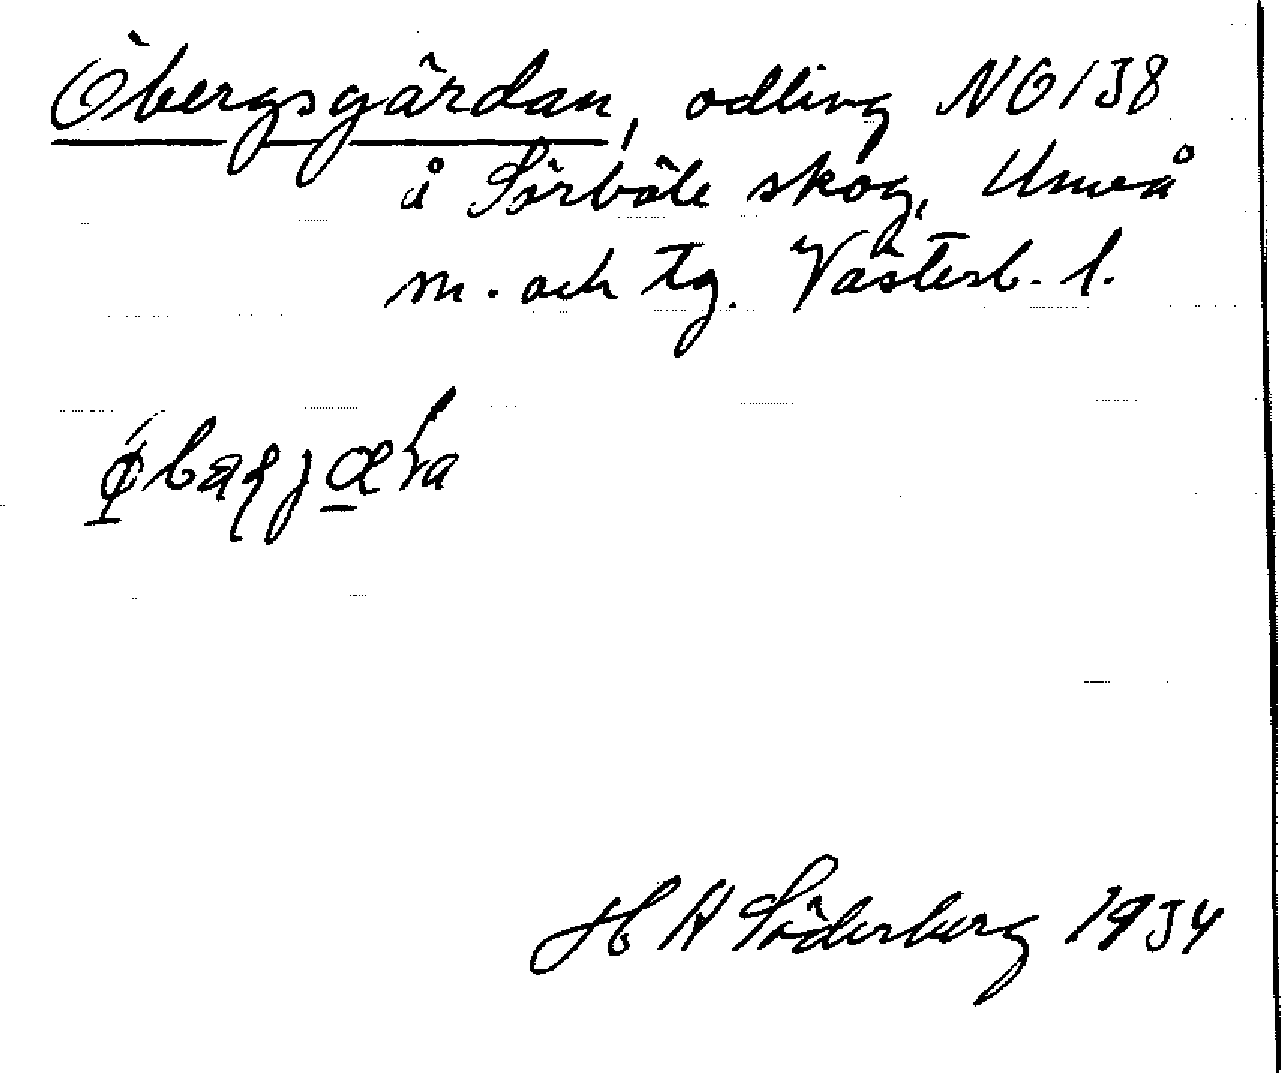 Öbergsgärdan, odling NO138
å Sörböle skog, Umeå
m. och tg. Västerb. l.
H A Söderberg 1934